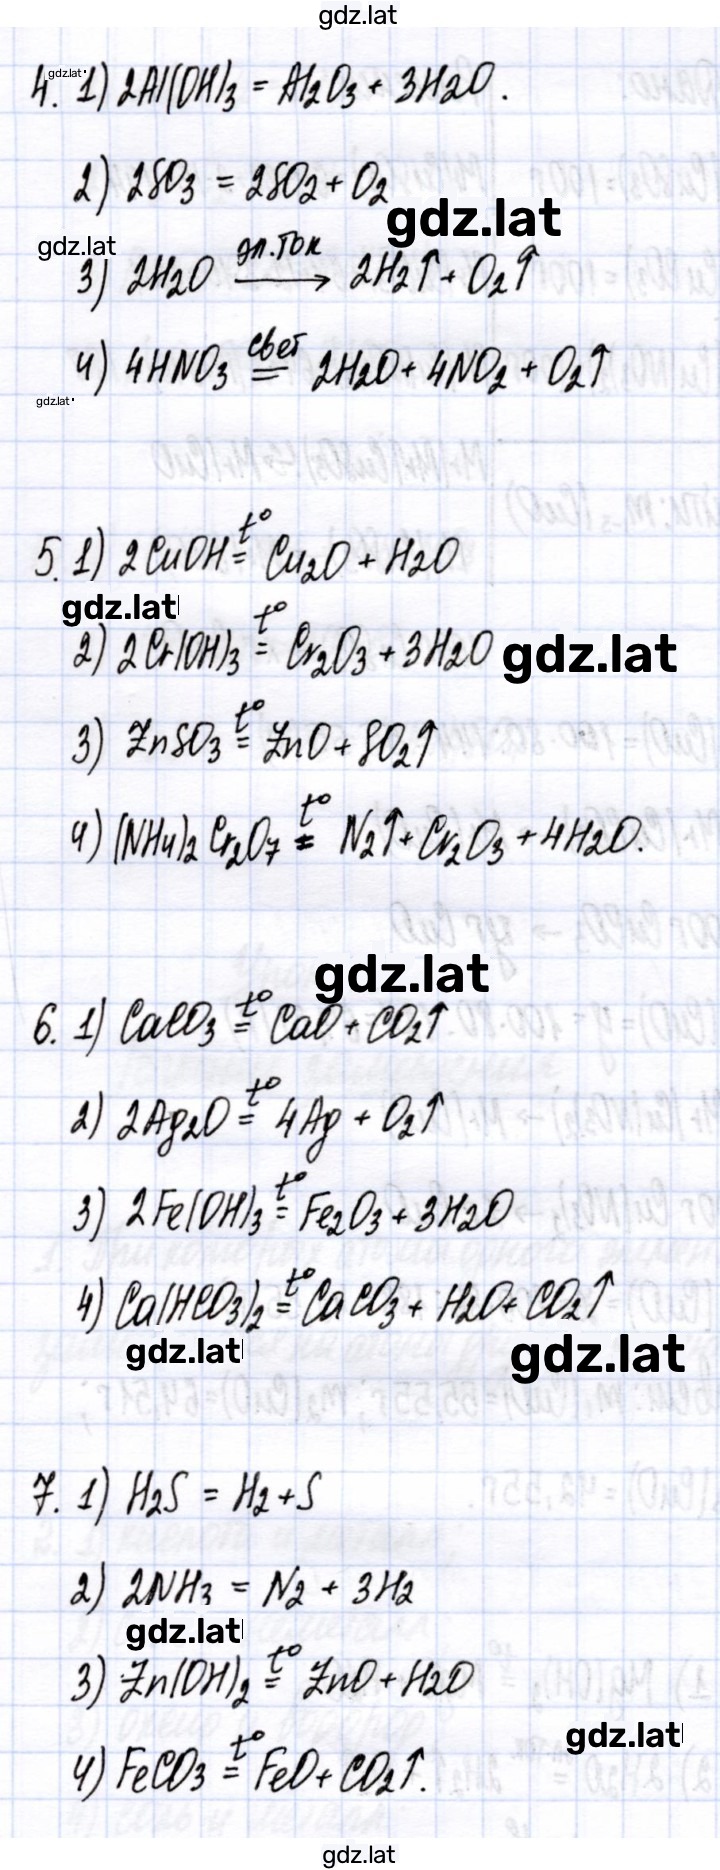 gdz.lat
gdz.lat
4. 1) 2Al(OH)3 = Al2O3 + 3H2O.
2) 2SO3 = 2SO2 + O2
gdz.lat
gdz.lat
3) 2H2O эл. ток → 2H2↑ + O2↑
4) 4HNO3 свет = 2H2O + 4NO2 + O2↑
gdz.lat
5. 1) 2CuOH t° = Cu2O + H2O
gdz.lat
2) 2Cr(OH)3 t° = Cr2O3 + 3H2O
gdz.lat
3) ZnSO3 t° = ZnO + SO2↑
4) (NH4)2Cr2O7 t° = N2↑ + Cr2O3 + 4H2O.
gdz.lat
6. 1) CaCO3 t° = CaO + CO2↑
2) 2Ag2O t° = 4Ag + O2↑
3) 2Fe(OH)3 t° = Fe2O3 + 3H2O
4) Ca(HCO3)2 t° = CaCO3 + H2O + CO2↑
gdz.lat
gdz.lat
7. 1) H2S = H2 + S
2) 2NH3 = N2 + 3H2
gdz.lat
3) Zn(OH)2 t° = ZnO + H2O
gdz.lat
4) FeCO3 t° = FeO + CO2↑.
gdz.lat